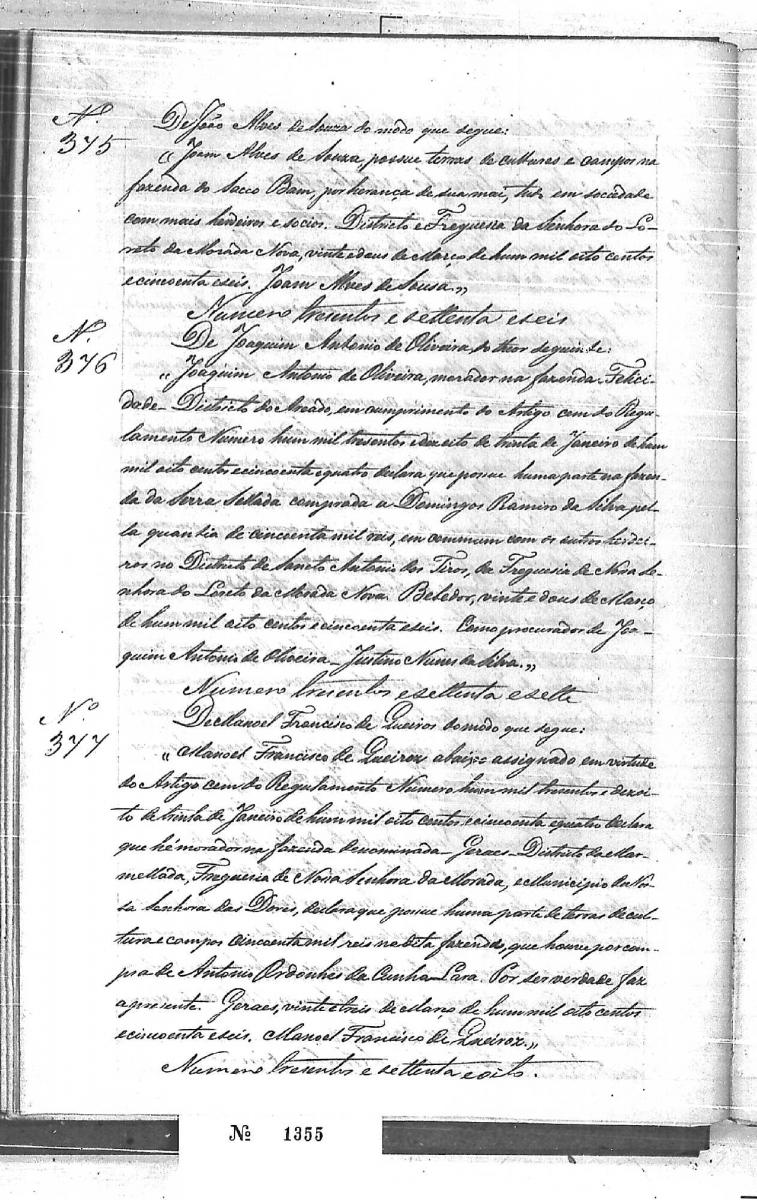 Nº 375
De João Alves de Souza do modo que segue:
"Joam Alves de Souza, possue terras de culturas e campos na
fazenda do Sacco Bam, por herança de sua mai, em sociedade
com mais herdeiros e socios. Districto e Freguesia da Senhora do Lo-
reto da Morada Nova, vinte e dous de Março de hum mil oito centos
e cincoenta e seis. Joam Alves de Sousa."
Numero tresentos e settenta e seis
Nº 376
De Joaquim Antonio de Oliveira, do thior seguinte:
"Joaquim Antonio de Oliveira, morador na fazenda Felici-
dade - Districto do Areado, em cumprimento do Artigo cem do Regu-
lamento Numero hum mil tresentos e dezoito de trinta de Janeiro de hum
mil oito centos e cincoenta e quatro declara que possue huma parte na fazen-
da da Serra Sellada comprada a Domingos Ramiro da Silva pel-
la quantia de cincoenta mil reis, em commum com os outros herdei-
ros no Districto de Sancto Antonio dos Tiros, da Freguesia de Nossa Se-
nhora do Loreto da Morada Nova. Bebedor, vinte e dous de Março
de hum mil oito centos e cincoenta e seis. Como procurador de Joa-
quim Antonio de Oliveira - Justino Nunes da Silva."
Numero tresentos e settenta e sette
Nº 377
De Manoel Francisco de Queiros do modo que segue:
"Manoel Francisco de Queiroz abaixo assignado em virtude
do Artigo cem do Regulamento Numero hum mil tresentos e dezoi-
to de trinta de Janeiro de hum mil oito centos e cincoenta e quatro declara
que hé morador na fazenda denominada - Geraes - Districto da Mar-
mellada, Freguesia de Nossa Senhora da Morada, e Municipio da Nos-
sa Senhora das Dores, declara que possue huma parte de terras de cul-
tura e campos cincoenta mil reis na fazenda, que houve por com-
pra de Antonio Ordonhes da Cunha Lara. Por ser verdade faz
a presente. Geraes, vinte e treis de Março de hum mil oito centos
e cincoenta e seis. Manoel Francisco de Queiroz."
Numero tresentos e settenta e oito.
Nº 1355